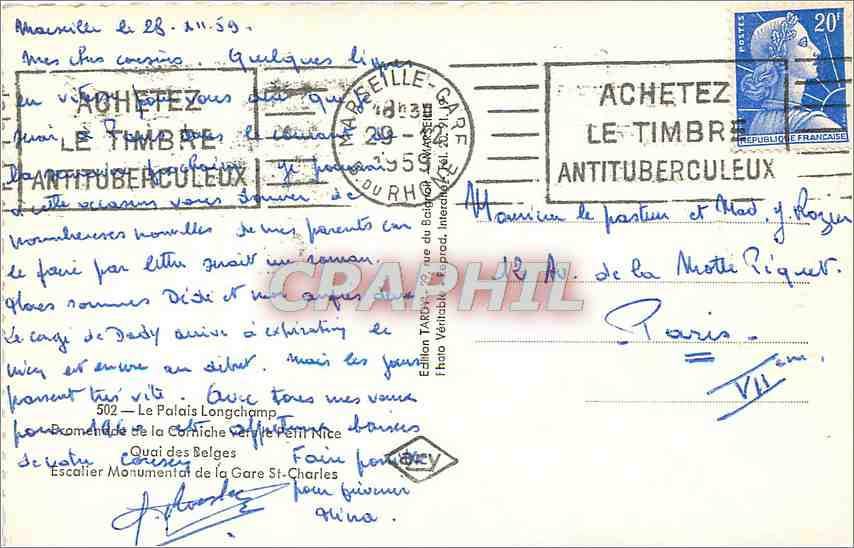 Marseille le 28. XII. 59.
Mes chers cousins. Quelques lignes
en vitesse pour vous dire que je
serai à Paris dans le courant de
la semaine prochaine. Je pourrai
à cette occasion vous donner de
nombreuses nouvelles de mes parents car
le faire par lettre serait un roman.
Nous sommes Dédé et moi auprès d'eux
Le congé de Dady arrive à expiration le
mien est encore au début. Mais les jours
passent très vite. Avec tous mes vœux
pour 1960 et affectueux baisers
de votre cousin
Faire
pour prévenir
Nina.
ACHETEZ
LE TIMBRE
ANTITUBERCULEUX
MARSEILLE-GARE
18h30
29-12
1959
B. DU RHONE
ACHETEZ
LE TIMBRE
ANTITUBERCULEUX
POSTES
20F
REPUBLIQUE FRANCAISE
Monsieur le pasteur et Mad. J. Rozier
12 Av. de la Motte Piquet.
Paris
VII em.
Edition TARDY - 29, rue du Baignoir - MARSEILLE
Photo Véritable - Reprod. Interdite
502 — Le Palais Longchamp
Promenade de la Corniche vers le Petit Nice
Quai des Belges
Escalier Monumental de la Gare St-Charles
CPAPHIL